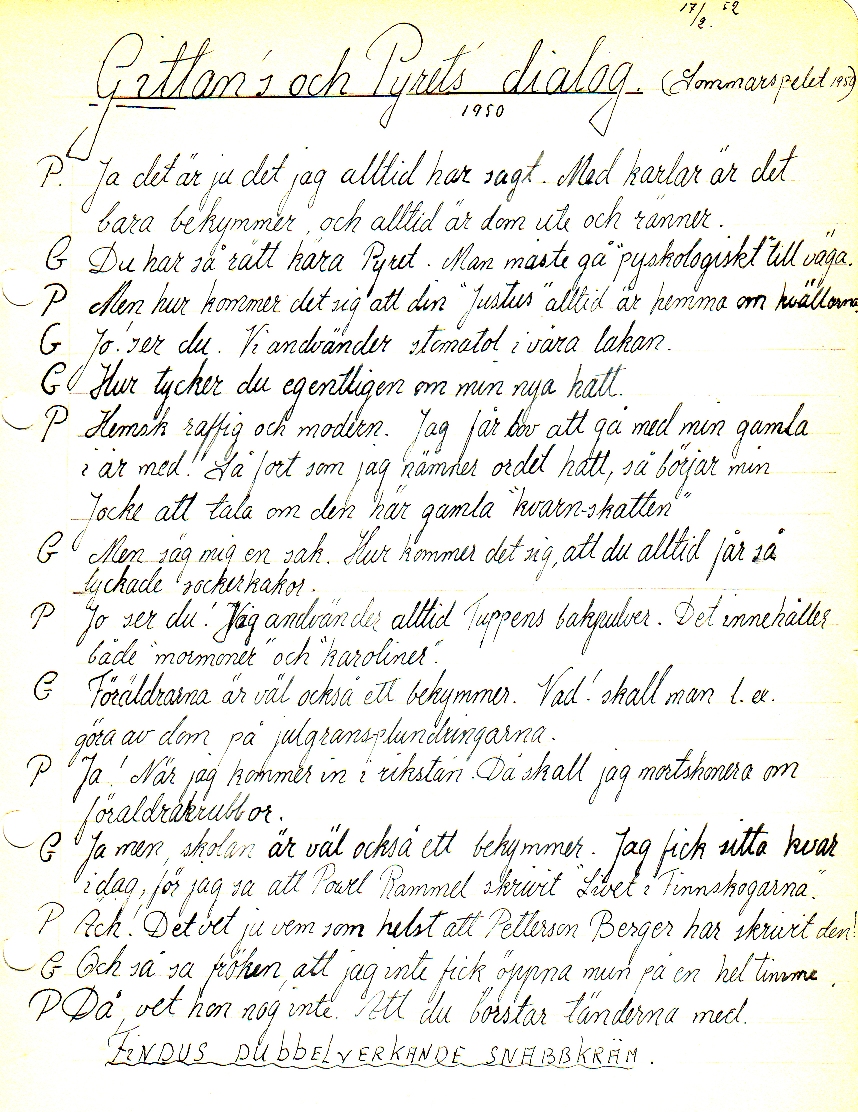 17/2. 52
Gittan's och Pyret's dialog. (Sommarspelet 1950)
1950
P. Ja det är ju det jag alltid har sagt. Med karlar är det
bara bekymmer, och alltid är dom ute och ränner.
G Du har så rätt kära Pyret. Man måste gå "pyskologiskt" till väga.
P Men hur kommer det sig att din "Justus" alltid är hemma om kvällarna
G Jo! ser du. Vi andvänder stomatol i våra lakan.
G Hur tycker du egentligen om min nya hatt.
P Hemsk raffig och modern. Jag får lov att gå med min gamla
i år med! Så fort som jag nämner ordet hatt, så börjar min
Jocke att tala om den här gamla "kvarn-skatten"
G Men säg mig en sak. Hur kommer det sig, att du alltid får så
lyckade sockerkakor.
P Jo ser du! Jag andvänder alltid Tuppens bakpulver. Det innehåller
både "mormoner" och "karoliner".
G Föräldrarna är väl också ett bekymmer. Vad! skall man t. ex.
göra av dom på julgransplundringarna.
P Ja! När jag kommer in i rikstan. Då skall jag mortshonera om
föraldrakrubbor.
G Ja men, skolan är väl också ett bekymmer. Jag fick sitta kvar
idag, för jag sa att Powel Rammel skrivit "Livet i Finnskogarna".
P Ack! Det vet ju vem som helst att Petterson Berger har skrivit den!
G Och så sa fröken, att jag inte fick öppna mun på en hel timme.
P Då, vet hon nog inte. Att du borstar tänderna med.
FINDUS DUBBELVERKANDE SNABBKRÄM.